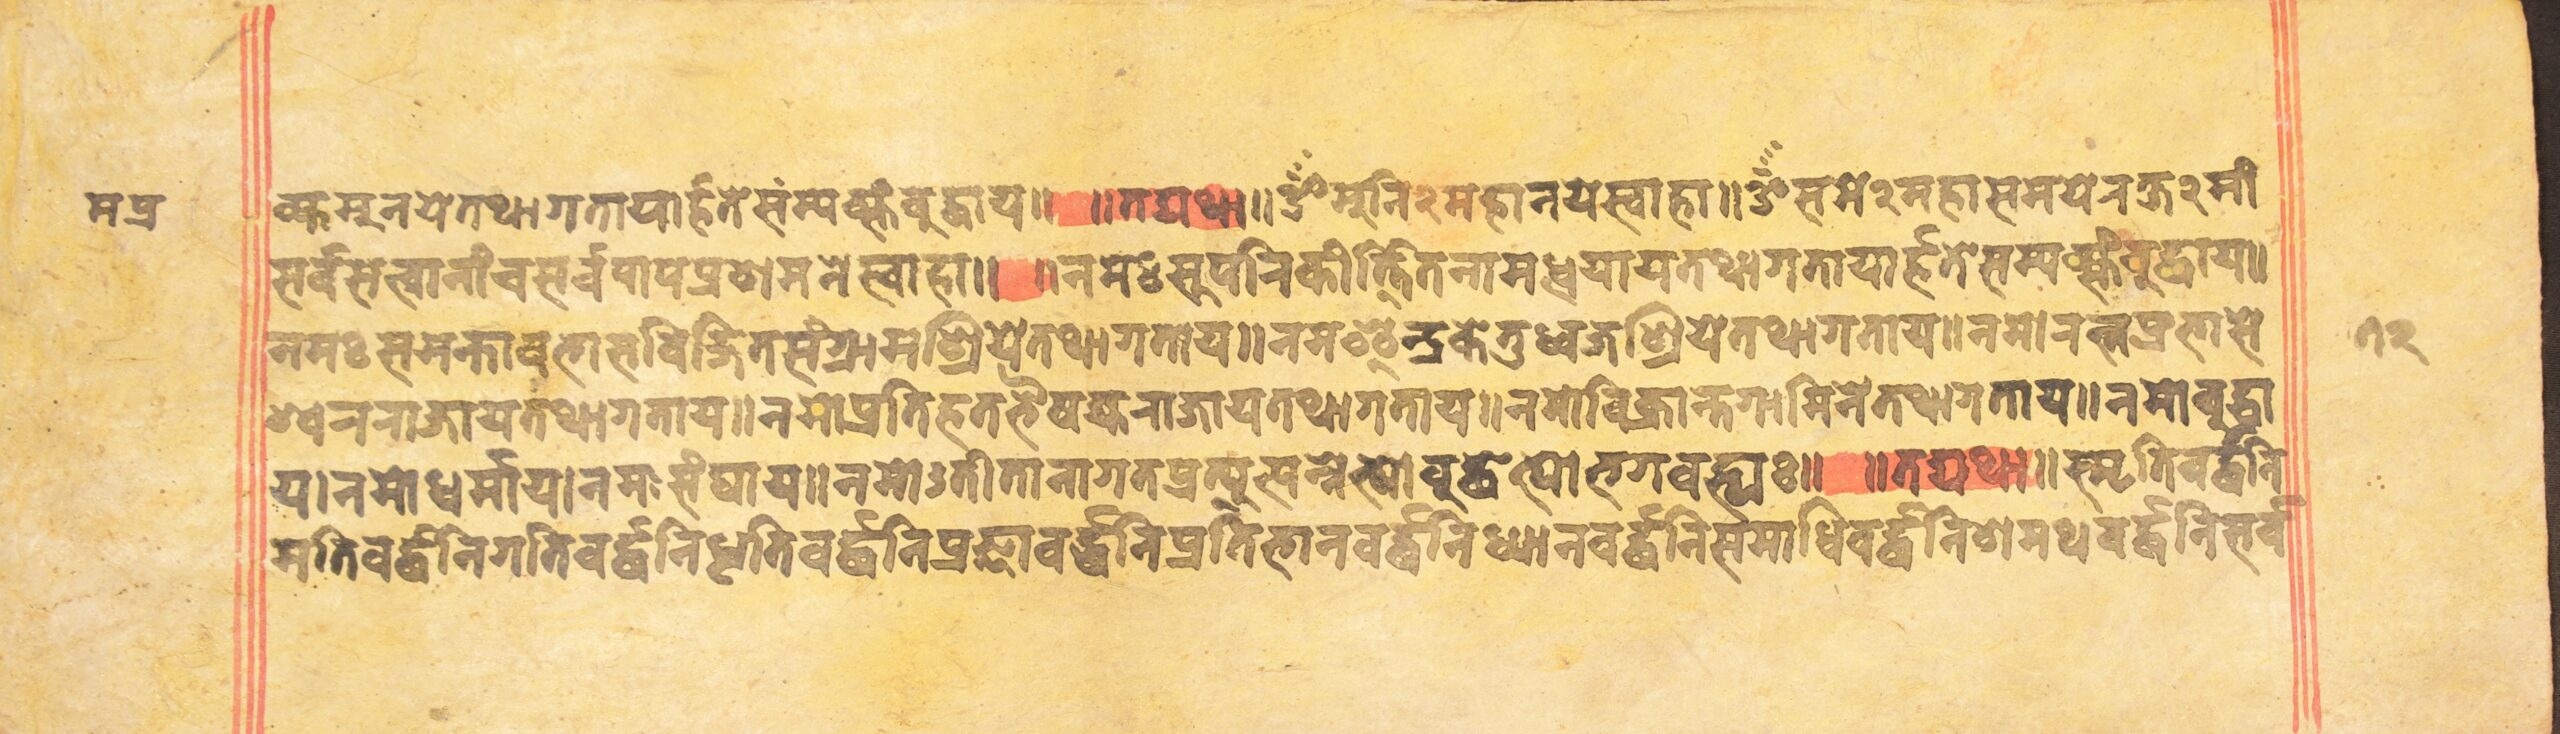 मप्र
क्यमुनयेतथागतायार्हतेसंम्यक्संबुद्धाय॥ ॥तद्यथा॥ॐमुनि२महानयेस्वाहा॥ॐसमे२महासमयेरक्ष२मां
सर्वसत्वानांचसर्वपापप्रशमनेस्वाहा॥ ॥नमःसुपरिकीर्त्तितनामध्रयायतथागतायार्हतेसम्यक्संबुद्धाय॥
नमःसमन्तावभासविजितसंग्रामश्रियेतथागताय॥नमइन्द्रकेतुध्वजश्रियेतथागताय॥नमोरत्नप्रभासे
श्वरराजायतथागताय॥नमोप्रतिहतभैषज्यराजायतथागताय॥नमोविक्रान्तगामिनेतथागताय॥नमोबुद्धा
य।नमोधर्माय।नमःसंघाय॥नमोऽतीतानागतप्रत्युत्पन्नेभ्योबुद्धेभ्योभगवद्भ्यः॥ ॥तद्यथा॥स्मृतिवर्द्धनि
मतिवर्द्धनिगतिवर्द्धनिधृतिवर्द्धनिप्रज्ञावर्द्धनिप्रतिभानवर्द्धनिध्यानवर्द्धनिसमाधिवर्द्धनिशमथवर्द्धनिसर्व